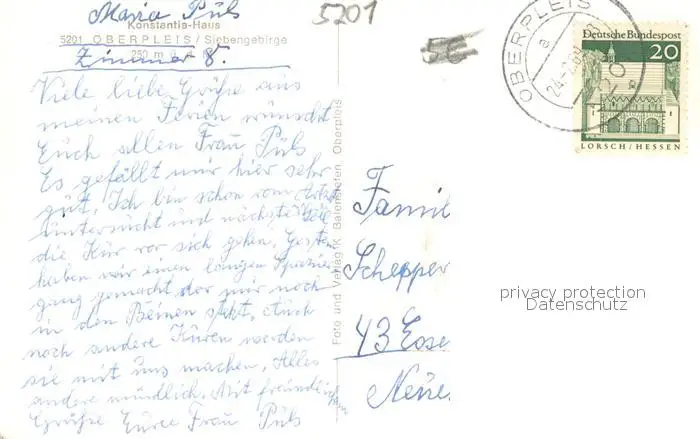 Maria Püls
Konstantia-Haus
5201 OBERPLEIS / Siebengebirge
250 m ü.
Zimmer 8.
5201
Viele liebe Grüße aus
meinen Ferien wünscht
Euch allen Frau Püls
Es gefällt mir hier sehr
gut. Ich bin schon vom Arzt
untersucht und nächste
die Kür vor sich gehen. Gestern
haben wir einen langen Spazier
gang gemacht der mir noch
in den Beinen stekt. Auch
noch andere Küren werden
sie mit uns machen. Alles
andere mündlich. Mit freundlichen
Grüße Eure Frau Püls
Foto und Verlag K. Oberpleis
Famil
Schepper
43 Esse
Neue
OBERPLEIS
a
Deutsche Bundespost
20
LORSCH / HESSEN
privacy protection
Datenschutz